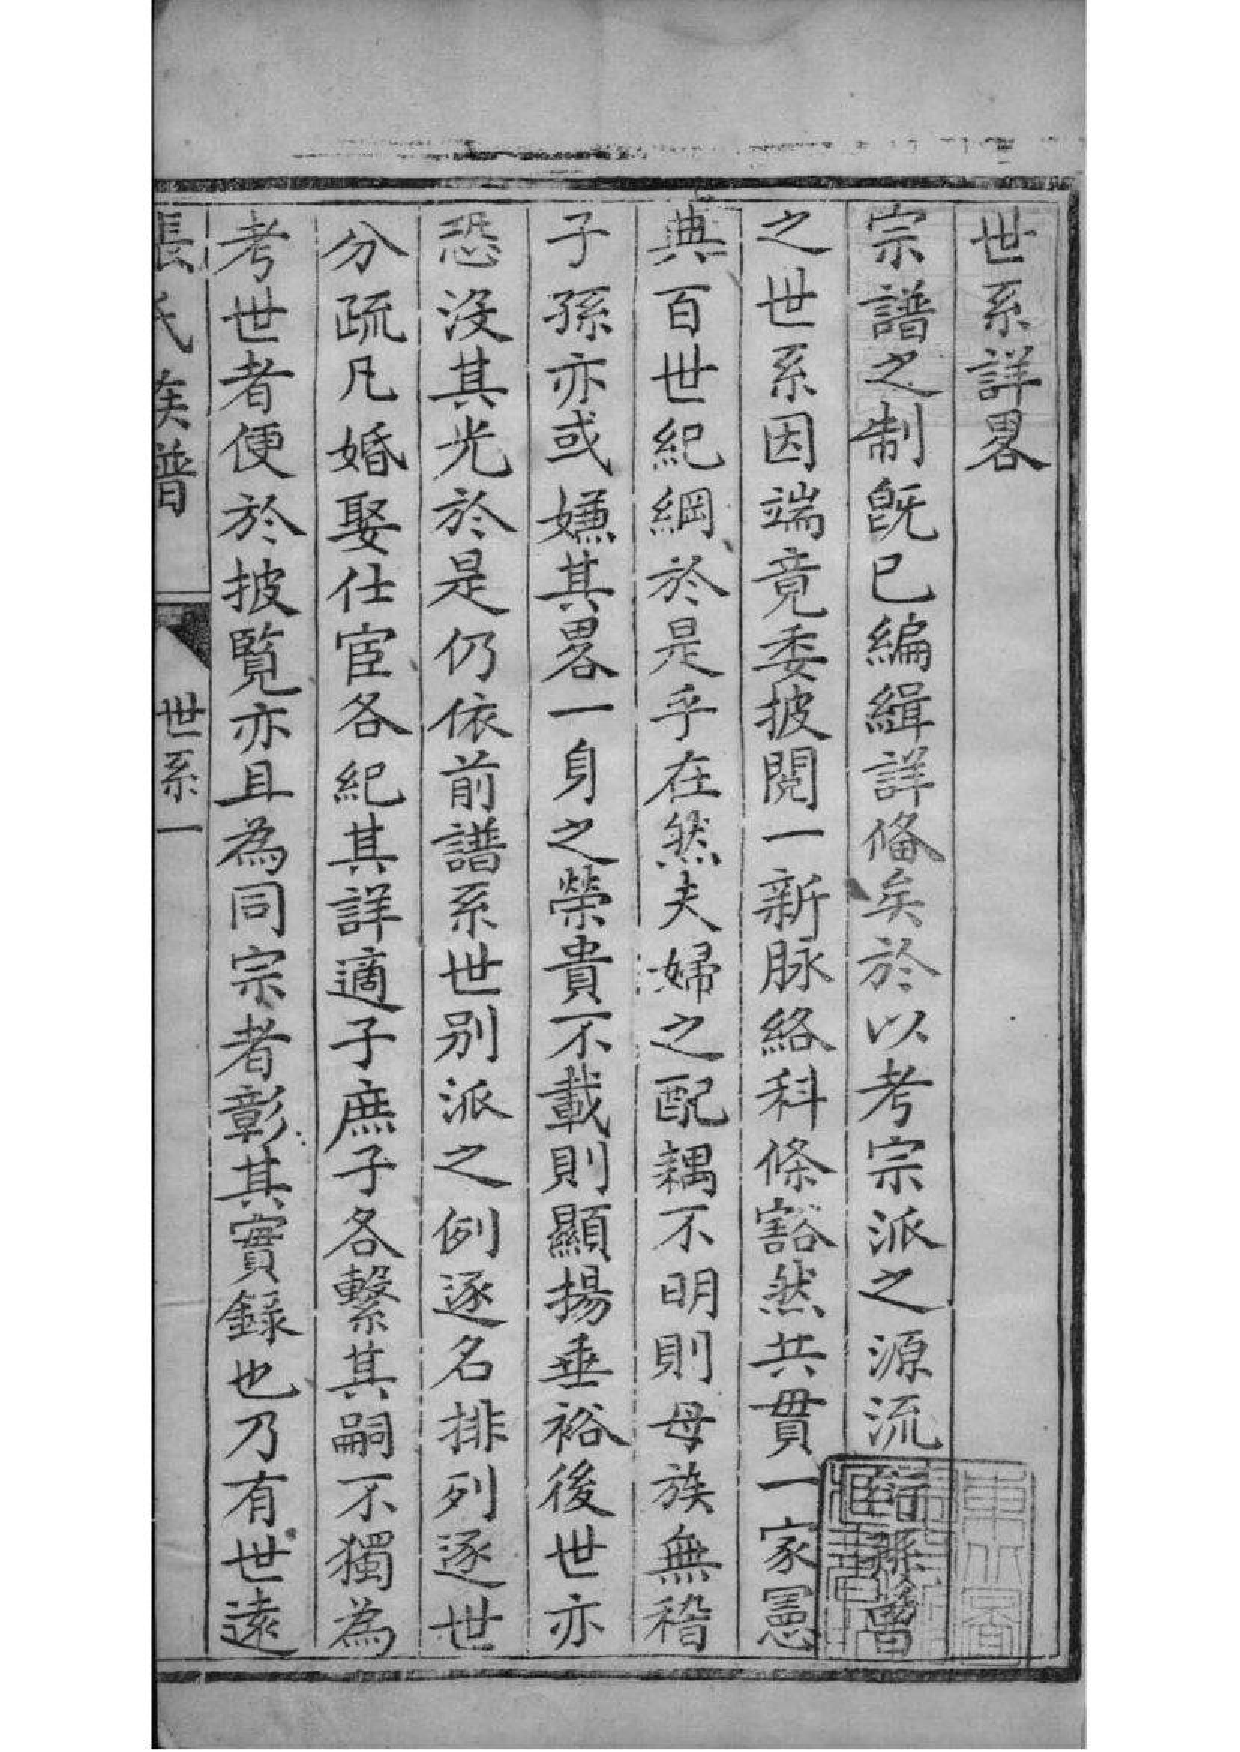 世系詳畧
宗譜之制旣已編緝詳備矣於以考宗派之源流
之世系因端竟委披閱一新脉絡科條豁然共貫一家憲
典百世紀綱於是乎在然夫婦之配耦不明則母族無稽
子孫亦或嫌其畧一身之榮貴不載則顯揚垂裕後世亦
恐沒其光於是仍依前譜系世别派之例逐名排列逐世
分疏凡婚娶仕宦各紀其詳適子庶子各繫其嗣不獨為
考世者便於披覧亦且為同宗者彰其實録也乃有世遠
張氏族譜 世系一